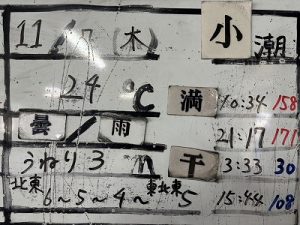 11/7 (木) 小潮
24 ℃ 満 10:34 158
曇/雨 21:17 171
うねり 3 m 干 3:33 30
北東 6~5~4~ 東北東 5 15:44 108